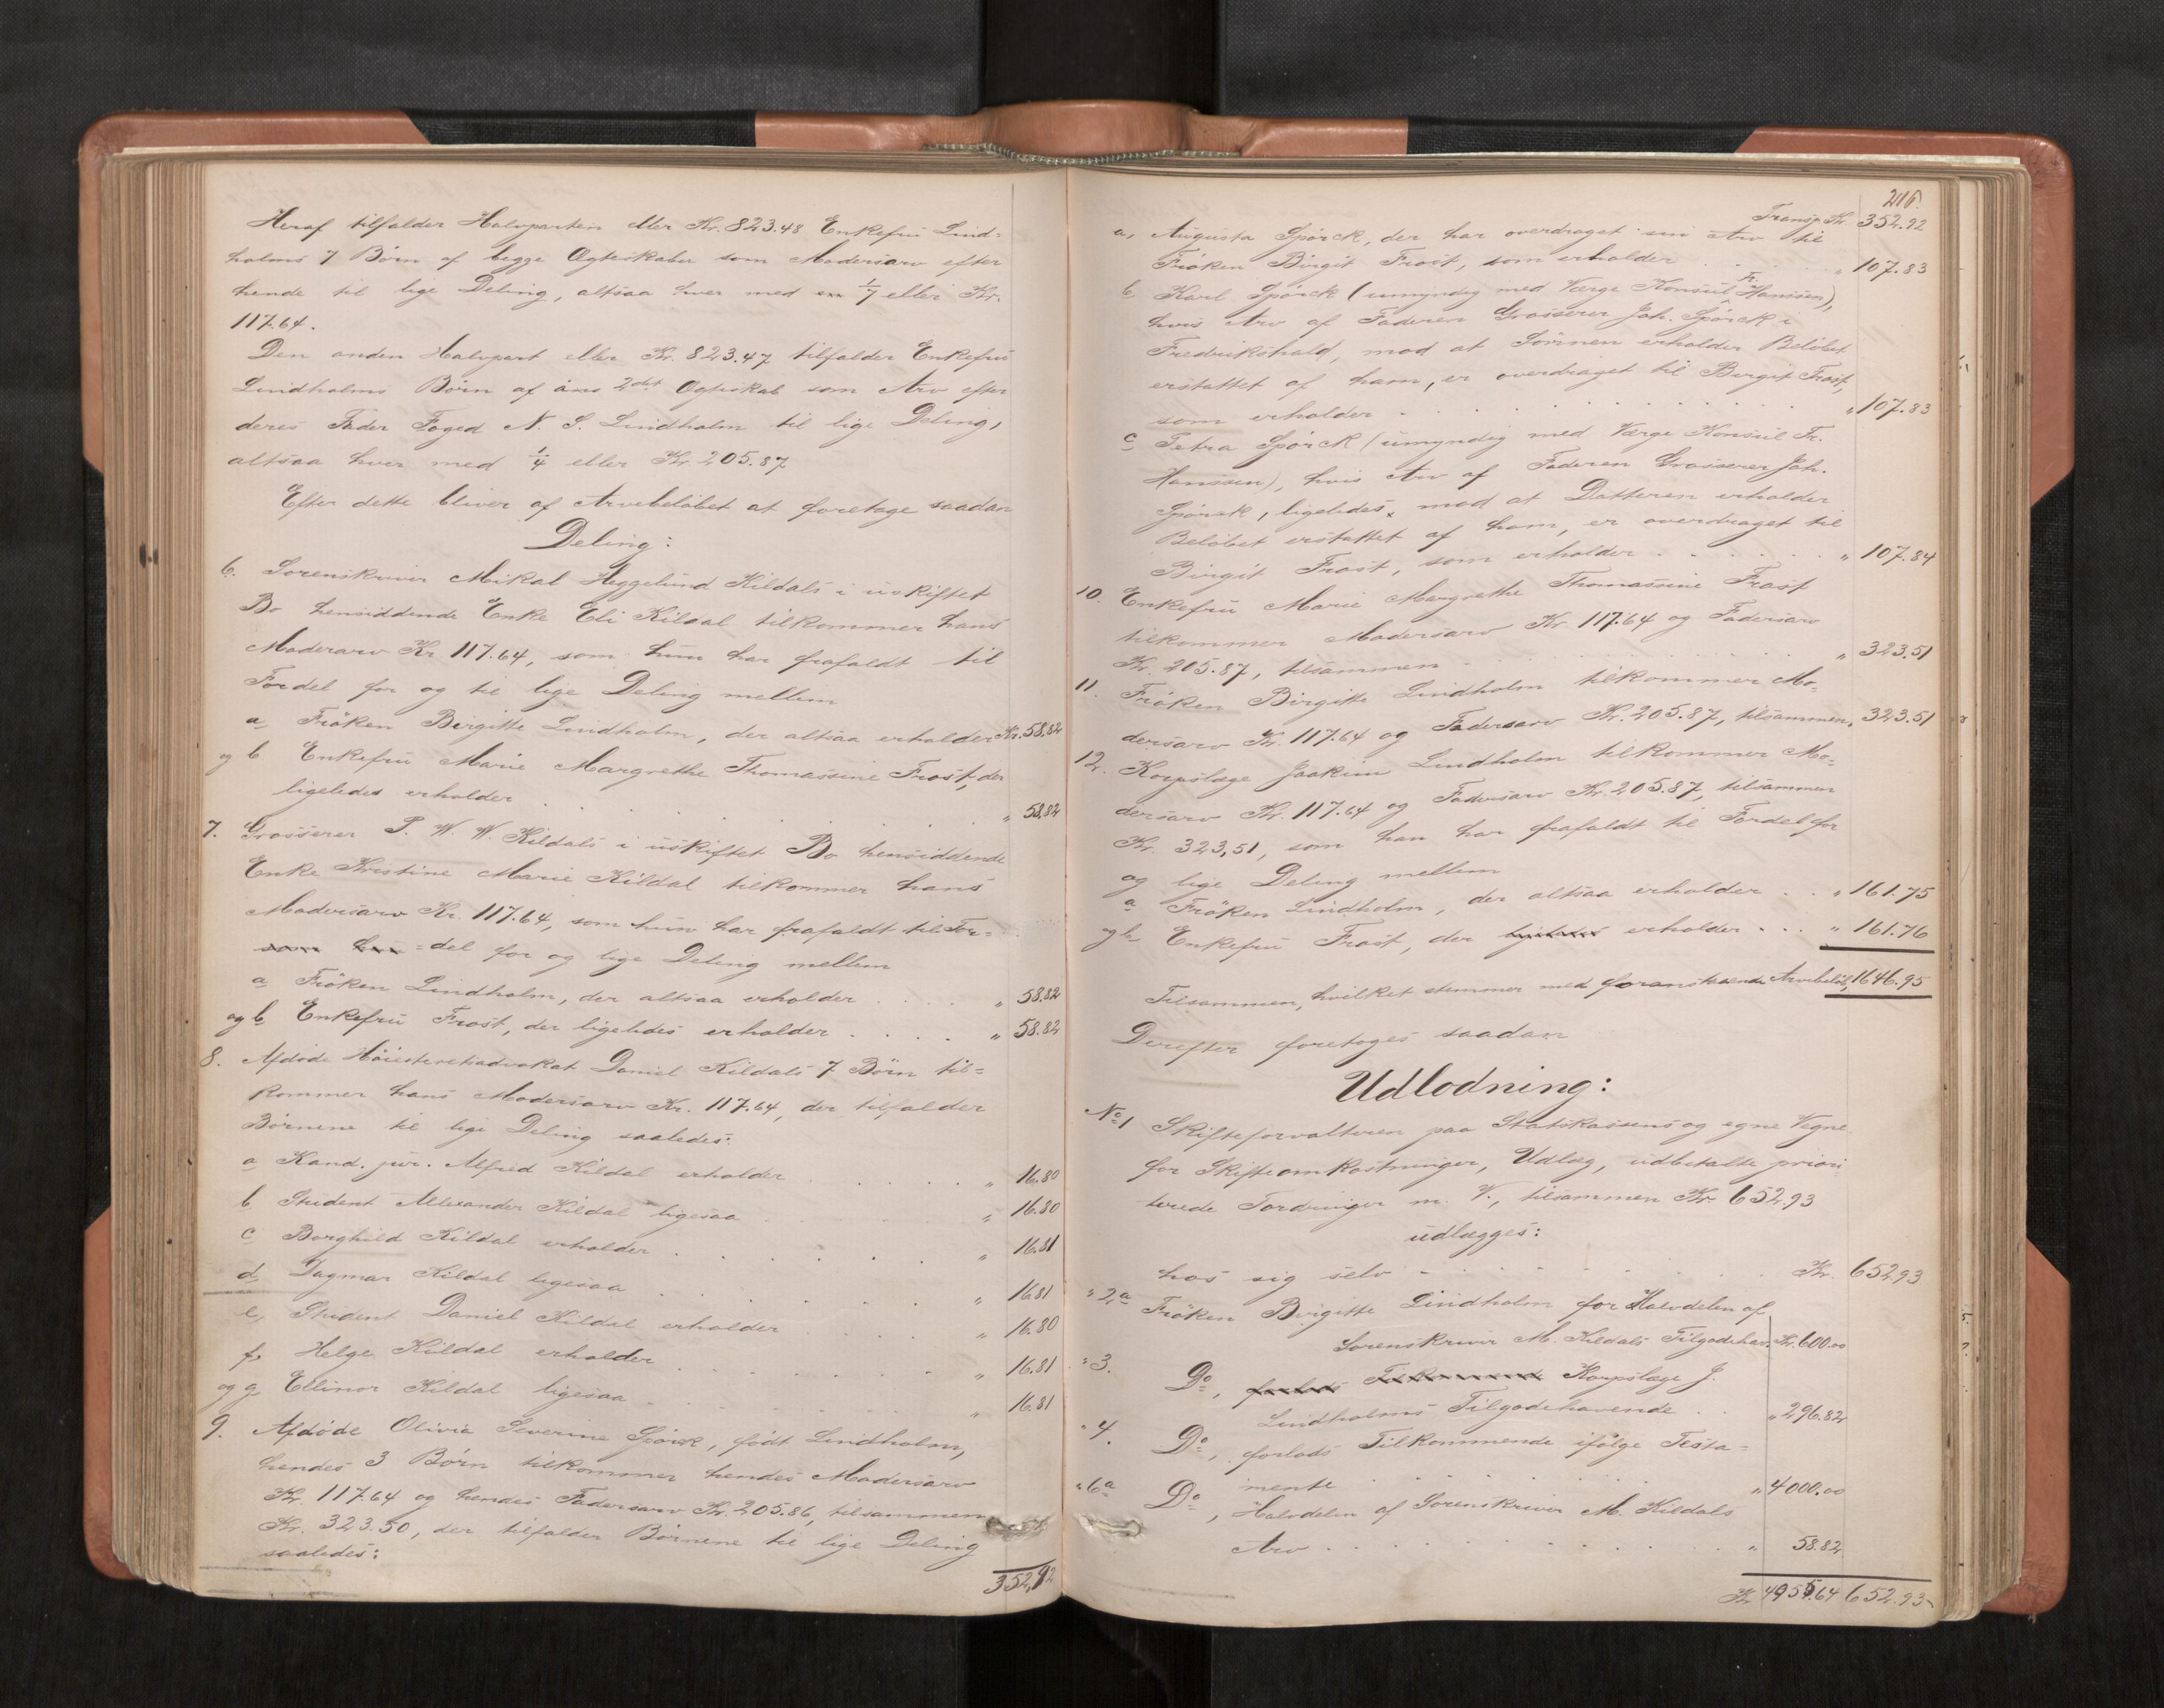 Heraf tilfalder Halvparten eller Kr. 823.48 Enkefru Lind-
holms 7 Børn af begge Ægteskaber som Modersarv efter
hende til lige Deling, altsaa hver med 1/7 eller Kr.
117.64.
Den anden Halvpart eller Kr. 823.47 tilfalder Enkefru
Lindholms Børn af 2det Ægteskab som Arv efter
deres Fader Foged N. S. Lindholm til lige Deling,
altsaa hver med 1/4 eller Kr 205.87
Efter dette bliver af Arvebeløbet at foretage saadan
Deling:
6. Sorenskriver Mikal Heggelund Kildals i uskiftet
Bo hensiddende Enke Eli Kildal tilkommer hans
Moderarv Kr. 117.64, som hun har frafaldt til
Fordel for og til lige Deling mellem
a Frøken Birgitte Lindholm, der altsaa erholder Kr. 58.82
og b Enkefru Marie Margrethe Thomassine Frost, der
ligeledes erholder . . . . . . . „ 58.82
7. Grosserer P. W. W. Kildals i uskiftet Bo hensiddende
Enke Kristine Marie Kildal tilkommer hans
Modersarv Kr. 117.64, som hun har frafaldt til For=
som hun =del for og lige Deling mellem
a Frøken Lindholm, der altsaa erholder . . . . „ 58.82
og b Enkefru Frost, der ligeledes erholder . . . . „ 58.82
8. Afdøde Høiesteretsadvokat Daniel Kildals 7 Børn til=
kommer hans Modersarv Kr. 117.64, der tilfalder
Børnene til lige Deling saaledes:
a Kand. jur. Alfred Kildal erholder . . . . . „ 16.80
b Student Allexander Kildal ligesaa . . . . „ 16.80
c Borghild Kildal erholder . . . . . . „ 16.81
d Dagmar Kildal ligesaa . . . . . . „ 16.81
e, Student Daniel Kildal erholder . . . . „ 16.80
f, Helge Kildal erholder . . . . . . „ 16.81
og g Ellinor Kildal ligesaa . . . . . . „ 16.81
9. Afdøde Olivia Severine Spørck, født Lindholm,
hendes 3 Børn tilkommer hendes Modersarv
Kr. 117.64 og hendes Fadersarv Kr. 205.86, tilsammen
Kr. 323.50, der tilfalder Børnene til lige Deling
saaledes:
352,92
216.
Transp. Kr. 352.92
a, Augusta Spørck, der har overdraget sin Arv til
Frøken Birgit Frost, som erholder . . . . . „ 107.83
b Karl Spørck (umyndig med Værge Konsul Fr. Hanssen),
hvis Arv af Faderen Grosserer Joh. Spørck i
Fredrikshald, mod at Sønnen erholder Beløbet
erstattet af ham, er overdraget til Birgit Frost,
som erholder . . . . . . . . . „ 107.83
c Petra Spørck (umyndig med Værge Konsul Fr.
Hanssen), hvis Arv af Faderen Grosserer Joh.
Spørck, ligeledes, mod at Datteren erholder
Beløbet erstattet af ham, er overdraget til
Birgit Frost, som erholder . . . . . . „ 107.84
10. Enkefru Marie Margrethe Thomassine Frost
tilkommer Modersarv Kr. 117.64 og Fadersarv
Kr. 205.87, tilsammen . . . . . . . . „ 323.51
11. Frøken Birgitte Lindholm tilkommer Mo-
dersarv Kr. 117.64 og Fadersarv Kr. 205.87, tilsammen „ 323.51
12. Korpslæge Joakim Lindholm tilkommer Mo-
dersarv Kr. 117.64 og Fadersarv Kr. 205.87, tilsammen
Kr. 323,51, som han har frafaldt til Fordel for
og lige Deling mellem
a Frøken Lindholm, der altsaa erholder . . „ 161.75
og b Enkefru Frost, der ligeledes erholder . . . „ 161.76
Tilsammen, hvilket stemmer med foranstaaende Arvebeløb, 1646.95
Derefter foretoges saadan
Udlodning:
No 1 Skifteforvalteren paa Statskassens og egne Vegne
for Skifteomkostninger, Udlæg, udbetalte priori
terede Fordringer m. V., tilsammen Kr 652.93
udlægges:
hos sig selv . . . . . . . . Kr. 652.93
„ 2,a Frøken Birgitte Lindholm for Halvdelen af
Sorenskriver M. Kildals Tilgodehav. Kr. 600.00
„ 3. Do, Korpslæge J.
Lindholms Tilgodehavende . . „ 296.82
„ 4. Do, forlods Tilkommende ifølge Testa=
mente . . . . . . . . „ 4000.00
„ 6a Do, Halvdelen af Sorenskriver M. Kildals
Arv . . . . . . . . . „ 58.82
Kr 4955.64 652.93